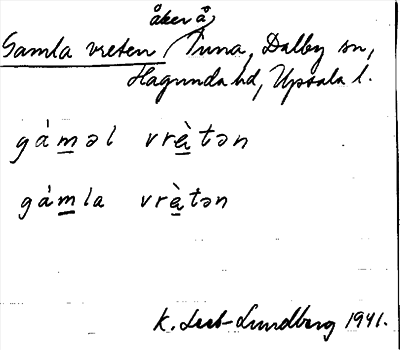 åker å
Gamla vreten Tuna, Dalby sn,
Hagunda hd, Upsala l.
gámǝl vrètǝn
gámla vrètǝn
K. Leet-Lundberg 1941.